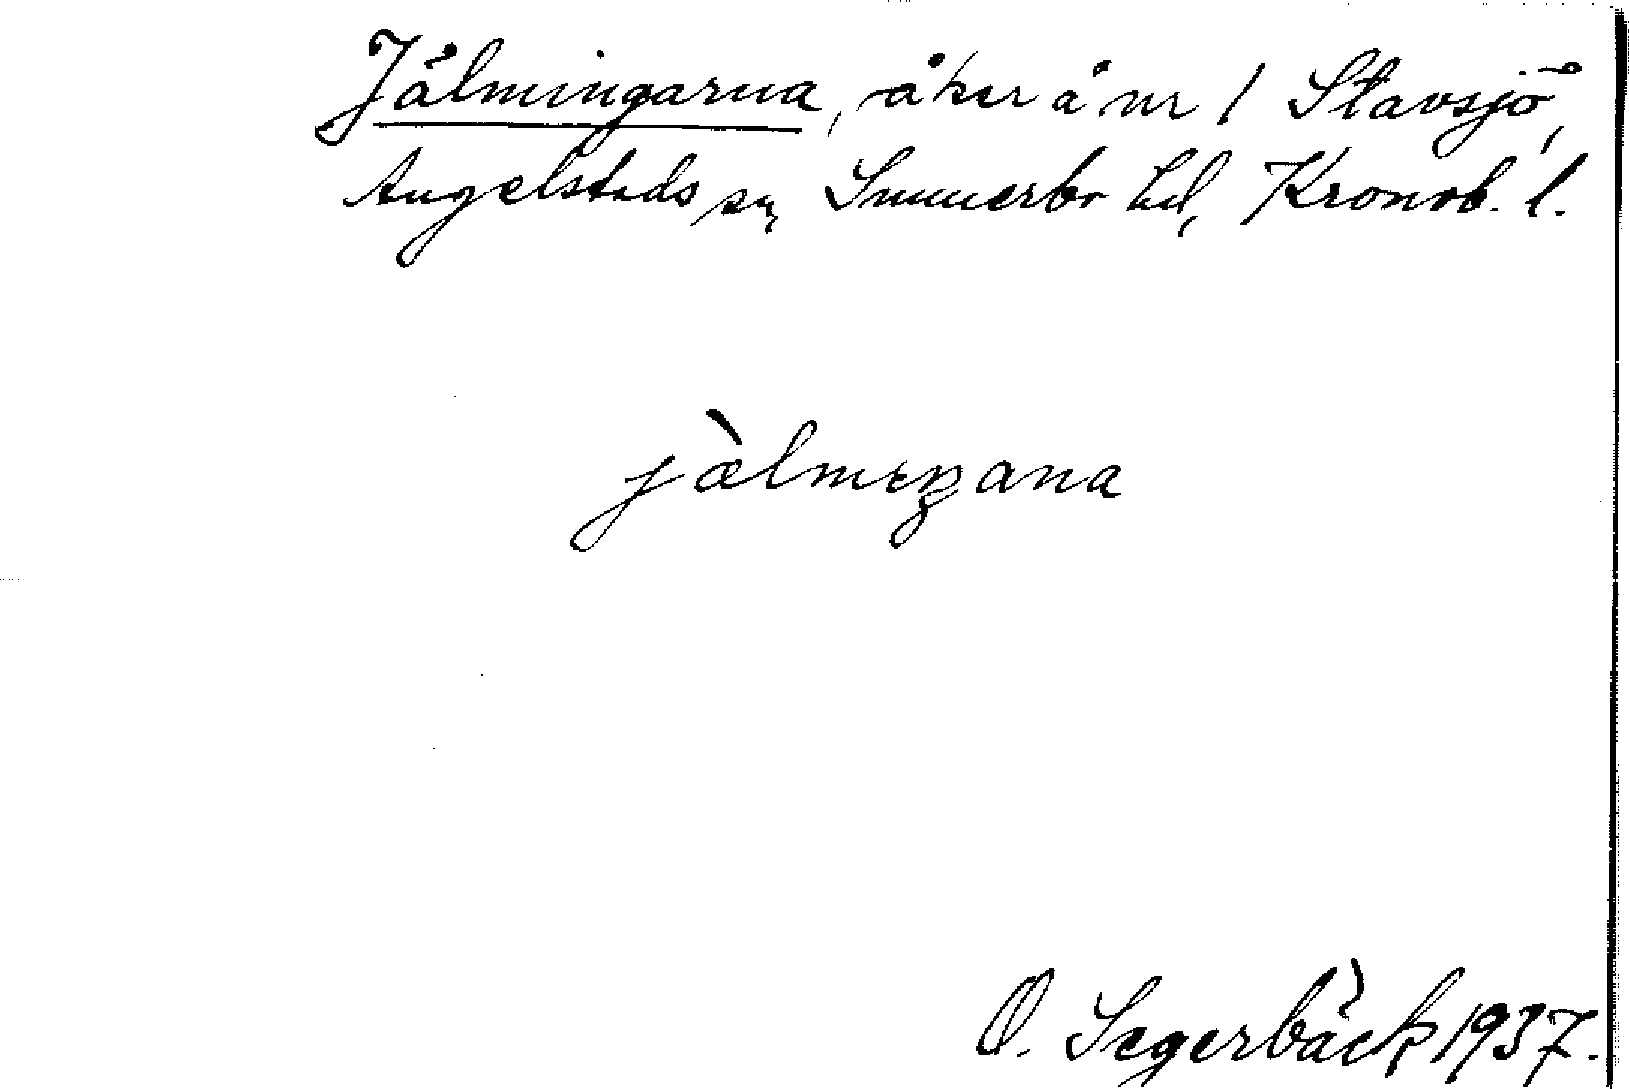 Jälmingarna, åker å nr 1 Stavsjö,
Angelstads sn, Sunnerbo hd, Kronob. l.
jæ̀lmeŋana
O. Segerbäck 1937.